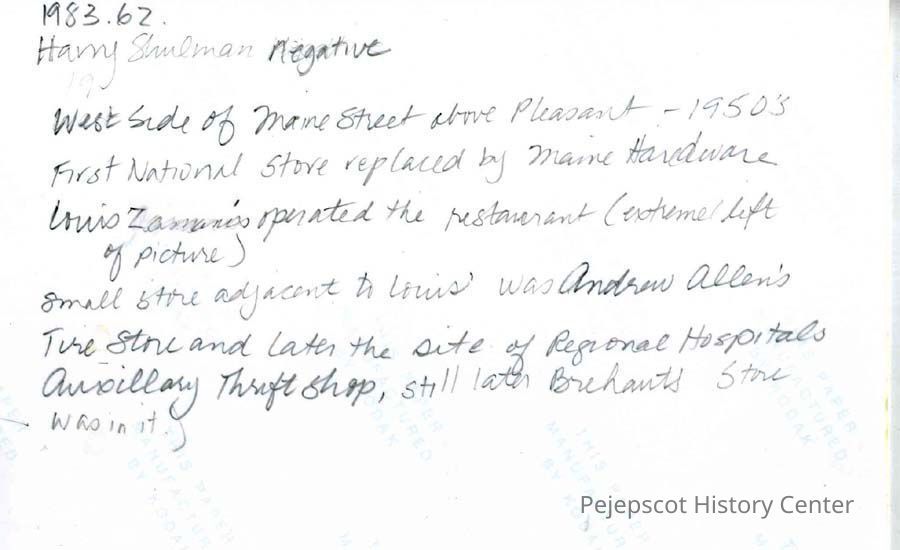 1983.62.
Harry Shulman Negative
19
West Side of Maine Street above Pleasant - 1950's
First National Store replaced by Maine Hardware
Louis Zamanis operated the restaurant (extreme left
of picture)
Small store adjacent to Louis' was Andrew Allen's
Tire Store and later the site of Regional Hospitals
Auxillary Thrift Shop, still later Store
was in it.)
THIS PAPER
MANUFACTURED
BY KODAK
Pejepscot History Center